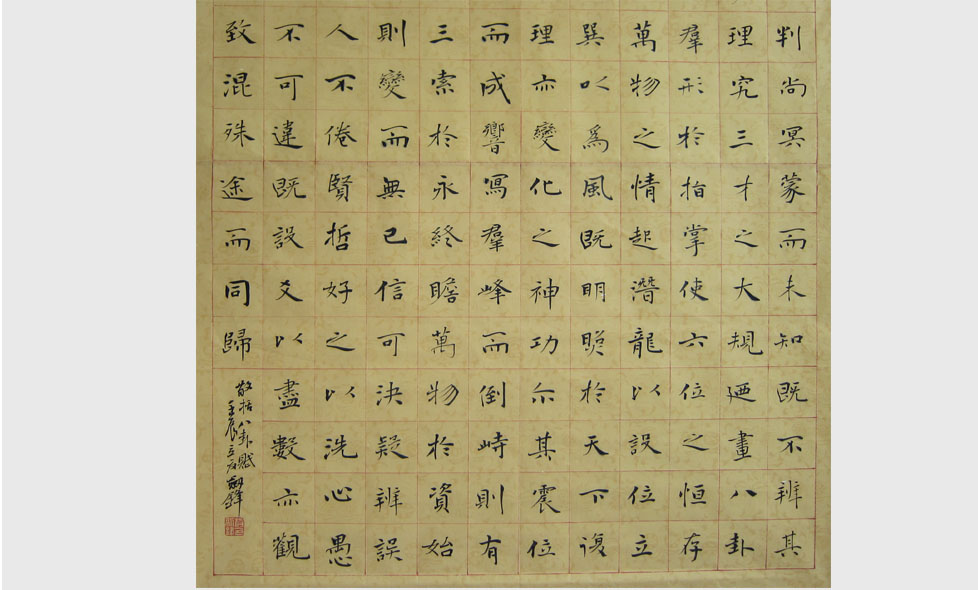 判尚冥蒙而未知既不辨其
理究三才之大規廼畫八卦
羣形於指掌使六位之恒存
萬物之情起潛龍以設位立
巽以爲風既明睽於天下復
理亦變化之神功尒其震位
而成響寫羣峰而倒峙則有
三索於永終瞻萬物於資始
則變而無已信可決疑辨誤
人不倦賢哲好之以洗心愚
不可違既設爻以盡數亦觀
致混殊途而同歸
八卦賦
壬辰立夏